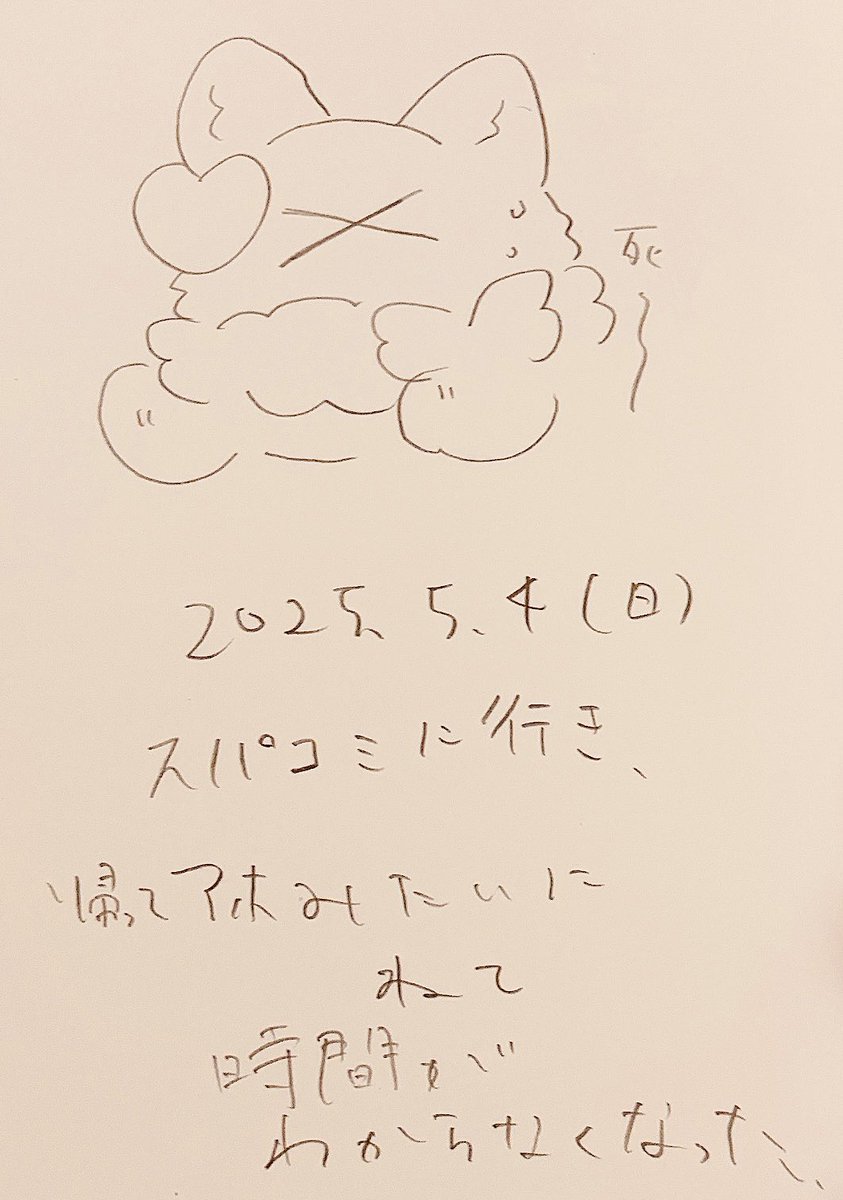 死〜
2025.5.4(日)
スパコミに行き、
帰ってアホみたいに
ねて
時間が
わからなくなった、